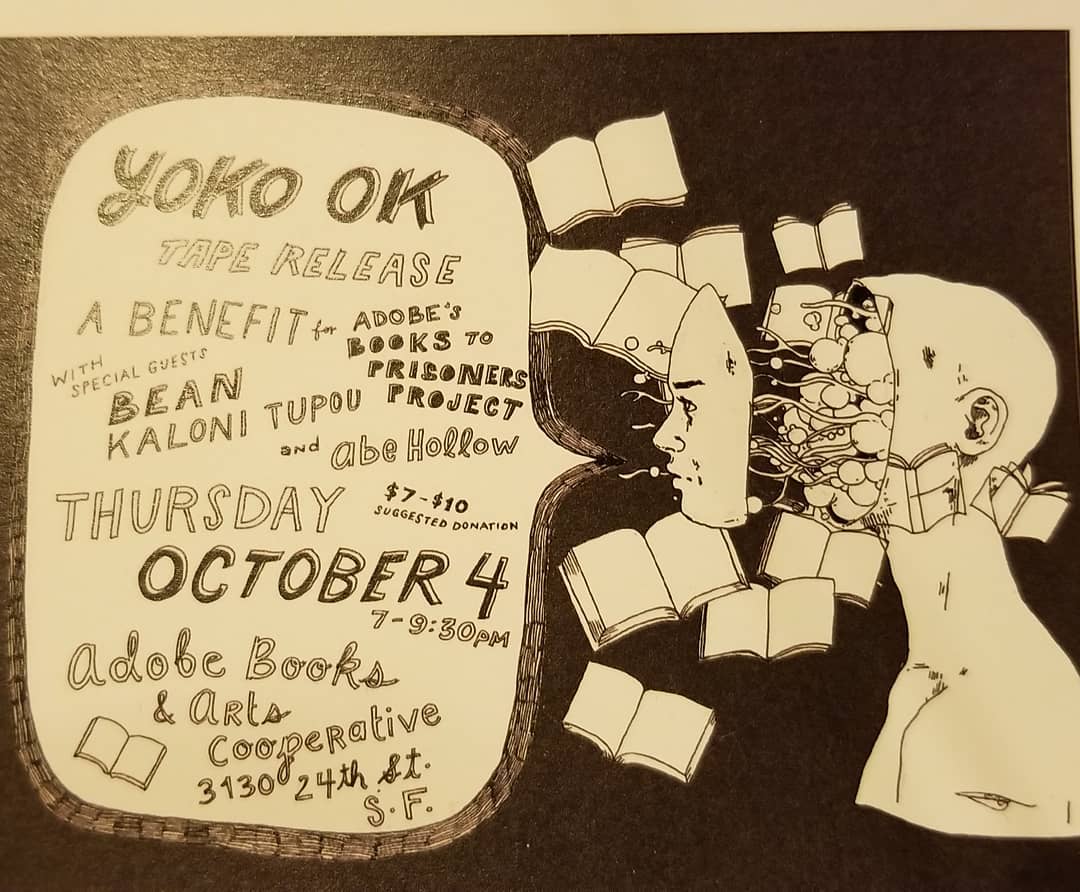 YOKO OK
TAPE RELEASE
A BENEFIT for ADOBE'S
BOOKS TO
PRISONERS
PROJECT
WITH
SPECIAL GUESTS
BEAN
KALONI TUPOU
and abe Hollow
THURSDAY
$7-$10
SUGGESTED DONATION
OCTOBER 4
7-9:30PM
adobe Books
& ARts
CoopeRative
3130 24th St.
S.F.